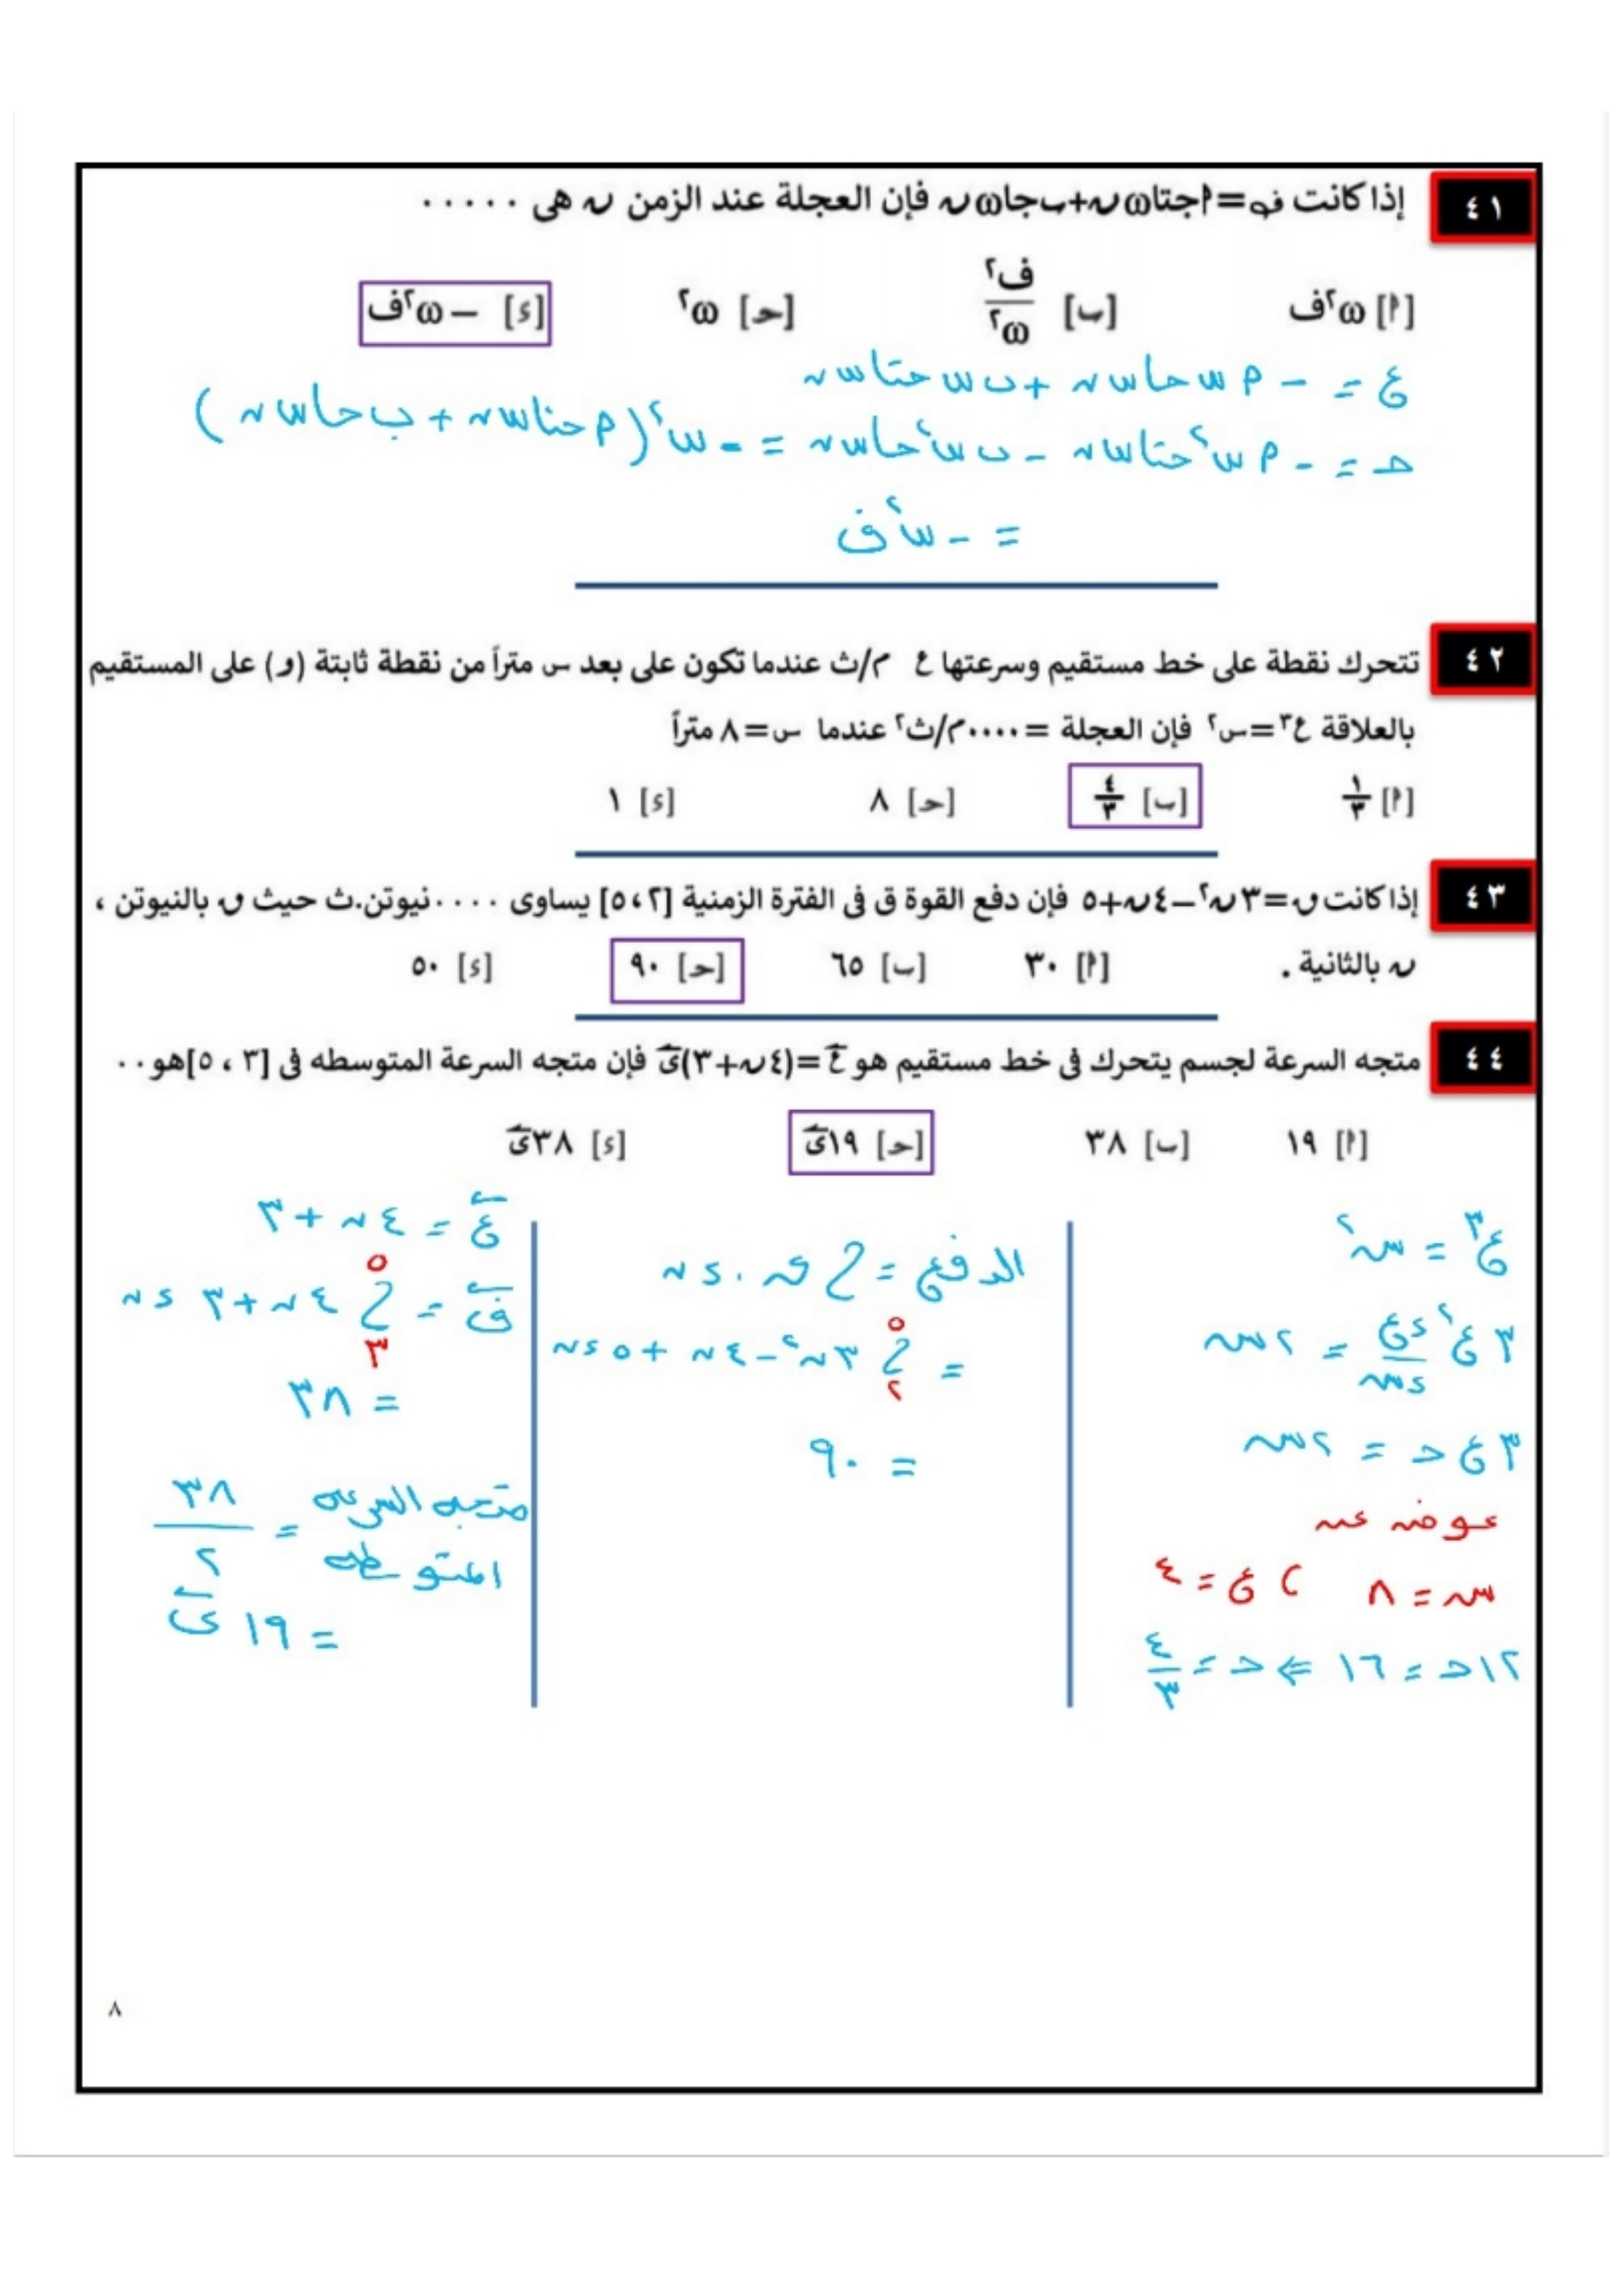 ٤١ إذا كانت ف = ا جتا ω ن + ب جا ω ن فإن العجلة عند الزمن ن هى .....
[ا] ω٢ف [ب] ف٢/ω٢ [حـ] ω٢ [ء] – ω٢ف
ع = - م س حاس ن + ب س حتاس ن
حـ = - م س٢ حتاس ن - ب س٢ حاس ن = - س٢ (م حتاس ن + ب حاس ن)
= - س٢ ف
٤٢ تتحرك نقطة على خط مستقيم وسرعتها ع م/ث عندما تكون على بعد س متراً من نقطة ثابتة (و) على المستقيم
بالعلاقة ع٣=س٢ فإن العجلة = ....م/ث٢ عندما س=٨ متراً
[ا] ١/٣ [ب] ٤/٣ [حـ] ٨ [ء] ١
٤٣ إذا كانت ق=٣ن٢–٤ن+٥ فإن دفع القوة ق فى الفترة الزمنية [٢،٥] يساوى ....نيوتن.ث حيث ق بالنيوتن ،
ن بالثانية .
[ا] ٣٠ [ب] ٦٥ [حـ] ٩٠ [ء] ٥٠
٤٤ متجه السرعة لجسم يتحرك فى خط مستقيم هو ع=(٤ن+٣)ى فإن متجه السرعة المتوسطه فى [٣ ، ٥]هو..
[ا] ١٩ [ب] ٣٨ [حـ] ١٩ى [ء] ٣٨ى
ع٣ = س٢
٣ع٢ ءع/ءس = ٢س
٣ع حـ = ٢س
عوض عند
س = ٨ ، ع = ٤
١٢حـ = ١٦ ⇐ حـ = ٤/٣
الدفع = ∫ ق . ء ن
= ∫ ٣ن٢ - ٤ن + ٥ ء ن
٥
٢
= ٩٠
ع = ٤ن + ٣
ف = ∫ ٤ن + ٣ ء ن
٥
٣
= ٣٨
متجه السرعه المتوسطه = ٣٨/٢
= ١٩ ى
٨